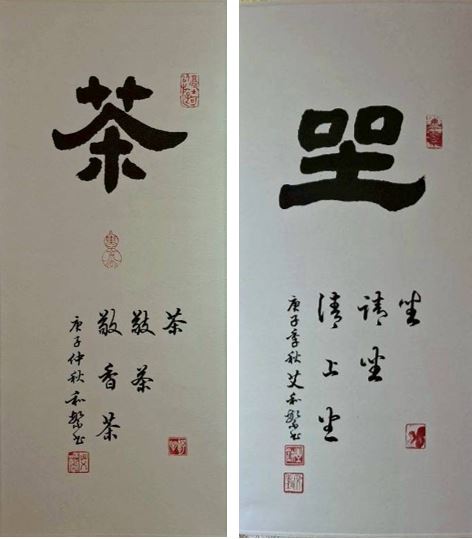 茶
茶
敬茶
敬香茶
庚子仲秋和书
坐
坐
请坐
请上坐
庚子季秋艾和书